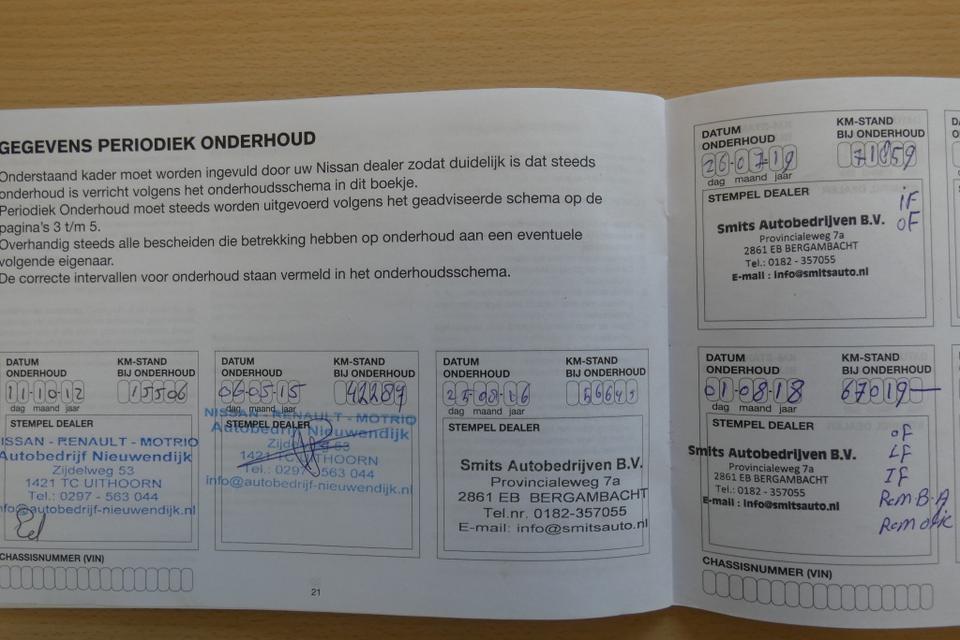 GEGEVENS PERIODIEK ONDERHOUD
Onderstaand kader moet worden ingevuld door uw Nissan dealer zodat duidelijk is dat steeds
onderhoud is verricht volgens het onderhoudsschema in dit boekje.
Periodiek Onderhoud moet steeds worden uitgevoerd volgens het geadviseerde schema op de
pagina's 3 t/m 5.
Overhandig steeds alle bescheiden die betrekking hebben op onderhoud aan een eventuele
volgende eigenaar.
De correcte intervallen voor onderhoud staan vermeld in het onderhoudsschema.
DATUM
ONDERHOUD
KM-STAND
BIJ ONDERHOUD
11-10-12
15506
dag maand jaar
STEMPEL DEALER
ISSAN - RENAULT - MOTRIO
Autobedrijf Nieuwendijk
Zijdelweg 53
1421 TC UITHOORN
Tel.: 0297 - 563 044
info@autobedrijf-nieuwendijk.nl
CHASSISNUMMER (VIN)
DATUM
ONDERHOUD
KM-STAND
BIJ ONDERHOUD
06-05-15
42289
dag maand jaar
STEMPEL DEALER
NISSAN - RENAULT - MOTRIO
Autobedrijf Nieuwendijk
Zijdelweg 53
1421 TC UITHOORN
Tel.: 0297 - 563 044
info@autobedrijf-nieuwendijk.nl
21
DATUM
ONDERHOUD
KM-STAND
BIJ ONDERHOUD
dag maand jaar
STEMPEL DEALER
Smits Autobedrijven B.V.
Provincialeweg 7a
2861 EB BERGAMBACHT
Tel.nr. 0182-357055
E-mail: info@smitsauto.nl
DATUM
ONDERHOUD
KM-STAND
BIJ ONDERHOUD
26-07-19
71859
dag maand jaar
STEMPEL DEALER
iF
oF
Smits Autobedrijven B.V.
Provincialeweg 7a
2861 EB BERGAMBACHT
Tel.: 0182 - 357055
E-mail : info@smitsauto.nl
DATUM
ONDERHOUD
KM-STAND
BIJ ONDERHOUD
01-08-18
67019
dag maand jaar
STEMPEL DEALER
oF
LF
IF
Rem B-A
Rem olie
Smits Autobedrijven B.V.
Provincialeweg 7a
2861 EB BERGAMBACHT
Tel.: 0182 - 357055
E-mail : info@smitsauto.nl
CHASSISNUMMER (VIN)